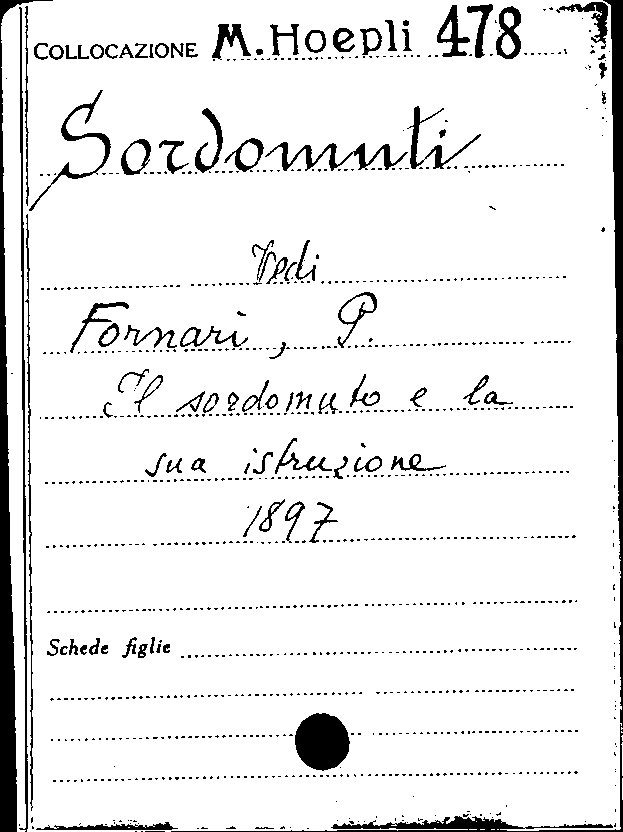 COLLOCAZIONE M.Hoepli 478
Sordomuti
Vedi
Fornari, P.
Il sordomuto e la
sua istruzione
1897
Schede figlie